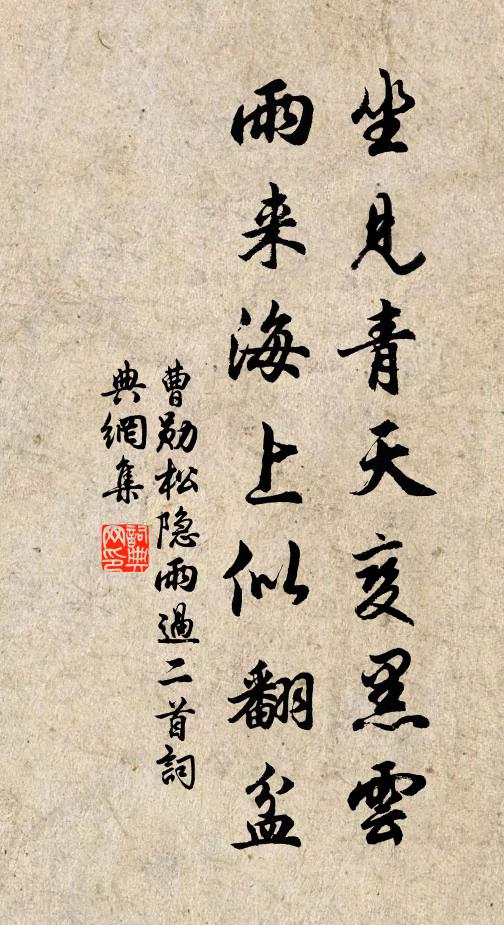 坐見青天变黑雲
雨来海上似翻盆
曹勛松隐雨過二首詞
典網集
詞典
网印